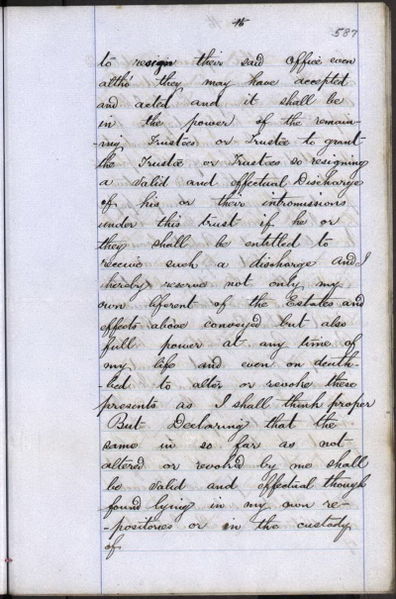 15
587
to resign their said Office even
altho' they may have accepted
and acted and it shall be
in the power of the remain-
-ing Trustees or Trustee to grant
the Trustee or Trustees so resigning
a valid and effectual Discharge
of his or their intromissions
under this trust if he or
they shall be entitled to
receive such a discharge And I
hereby reserve not only my
own liferent of the Estates and
effects above conveyed but also
full power at any time of
my life and even on death-
-bed to alter or revoke these
presents as I shall think proper
But Declaring that the
same in so far as not
altered or revoked by me shall
be valid and effectual though
found lying in my own re-
-positories or in the custody
of